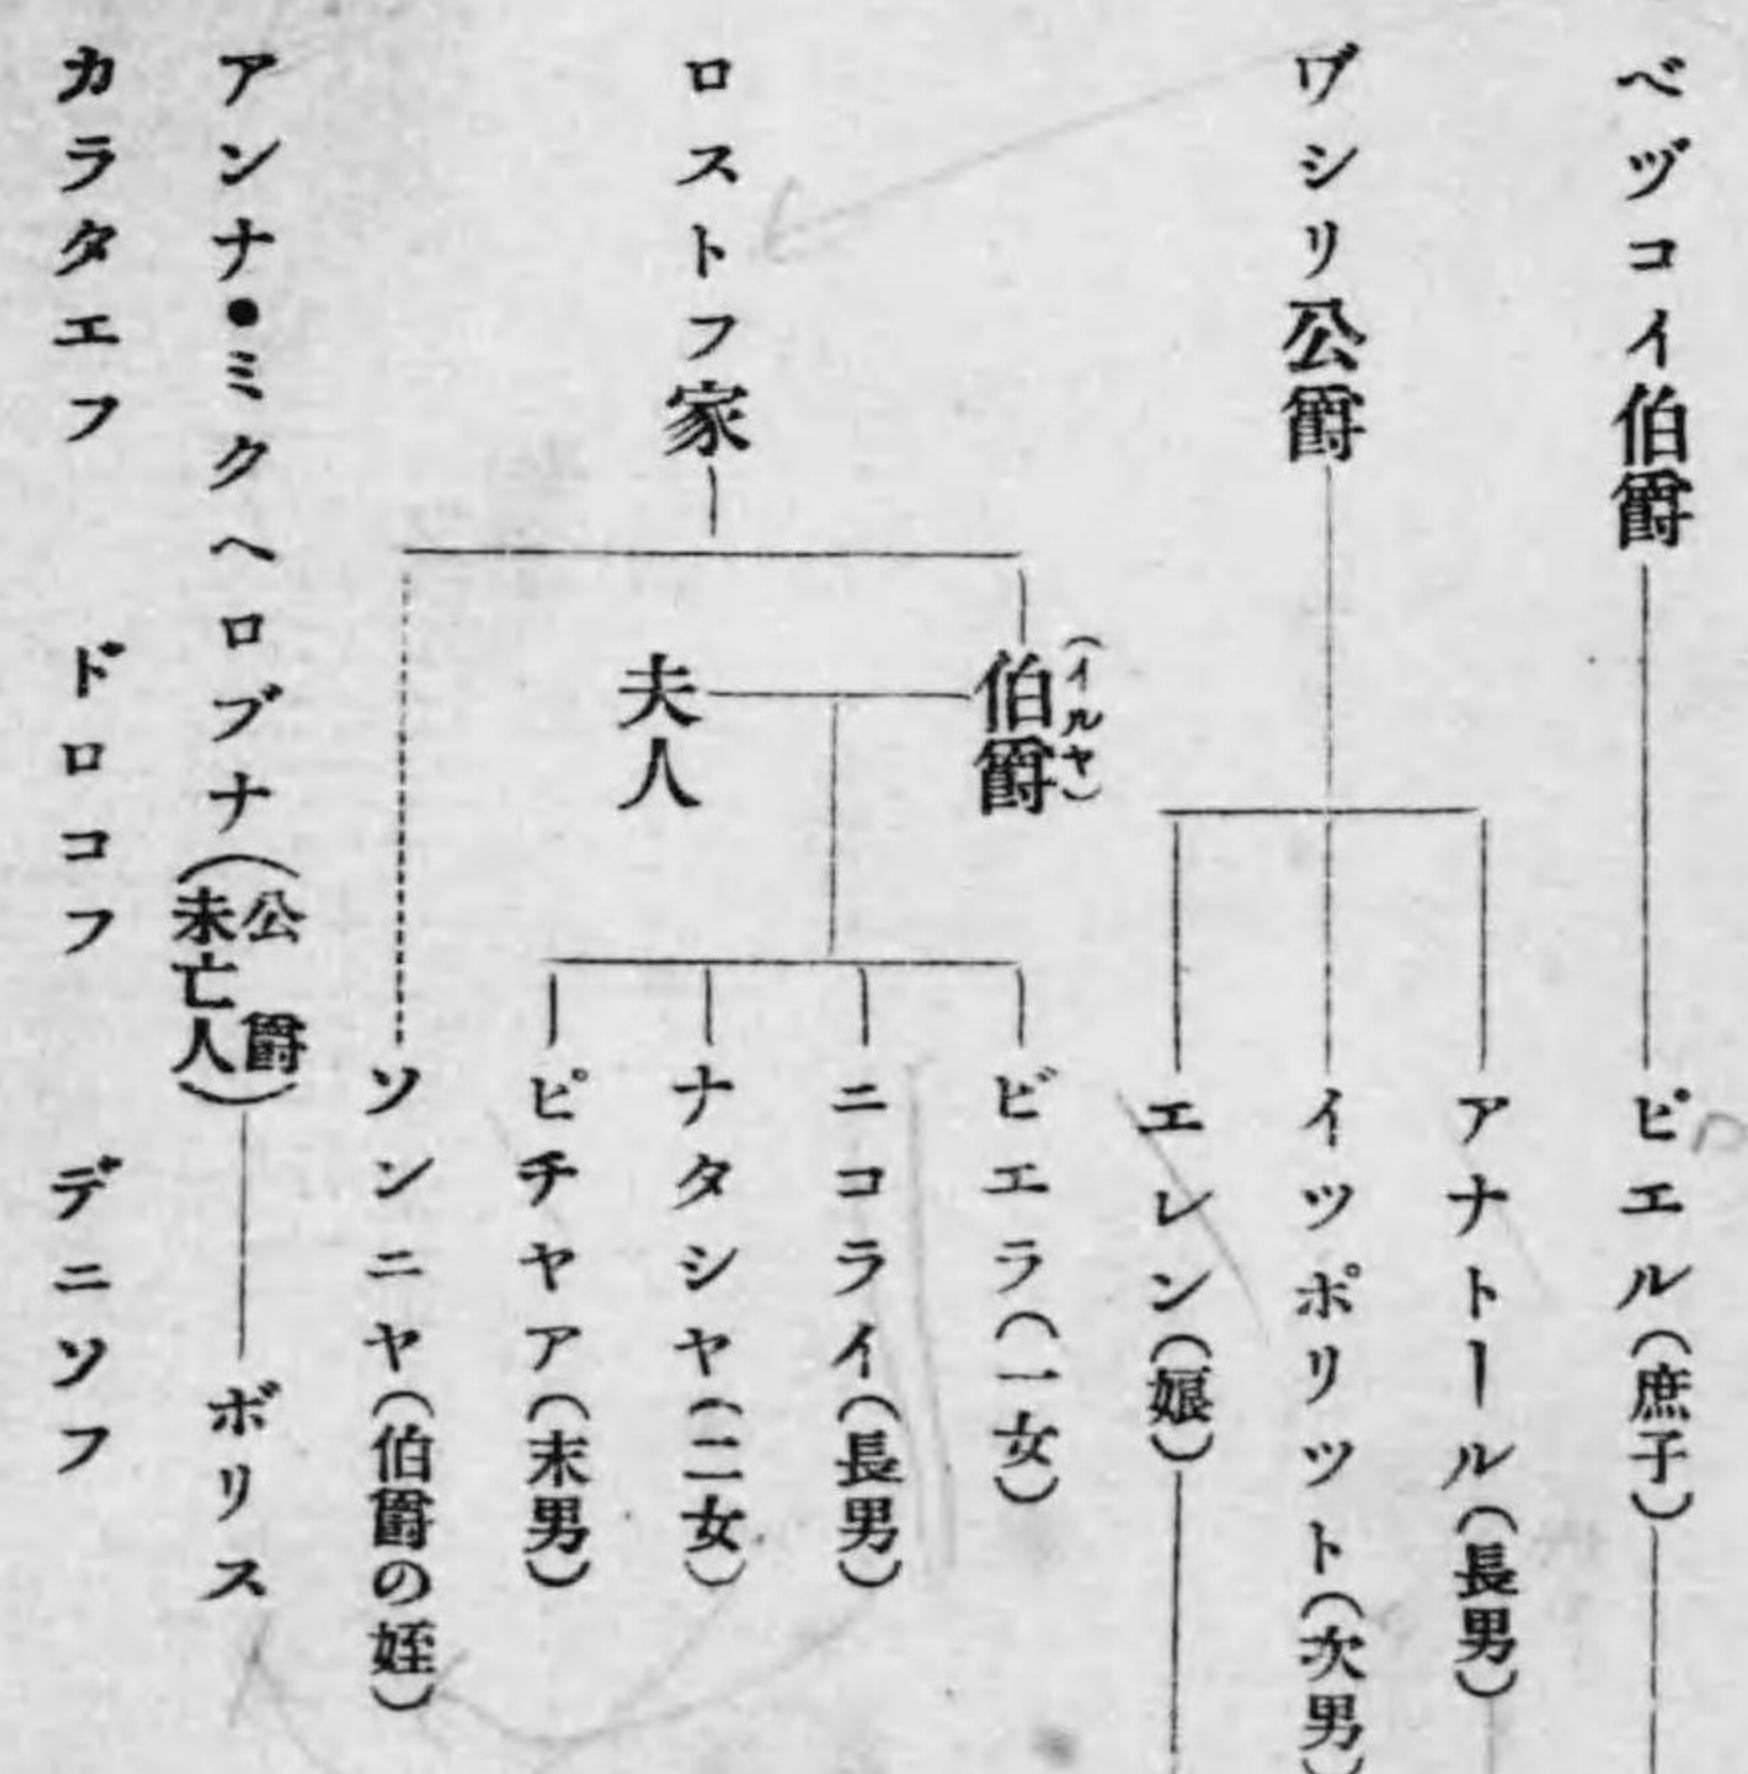 ベヅコイ伯爵
ピエル(庶子)
ワ゛シリ公爵
アナトール(長男)
イツポリツト(次男)
エレン(娘)
ロストフ家
伯爵(イルヤ)
夫人
ビエラ(一女)
ニコライ(長男)
ナタシヤ(二女)
ピチヤア(末男)
ソンニヤ(伯爵の姪)
アンナ・ミクヘロブナ(公爵未亡人)
ボリス
カラタエフ
ドロコフ
デニソフ